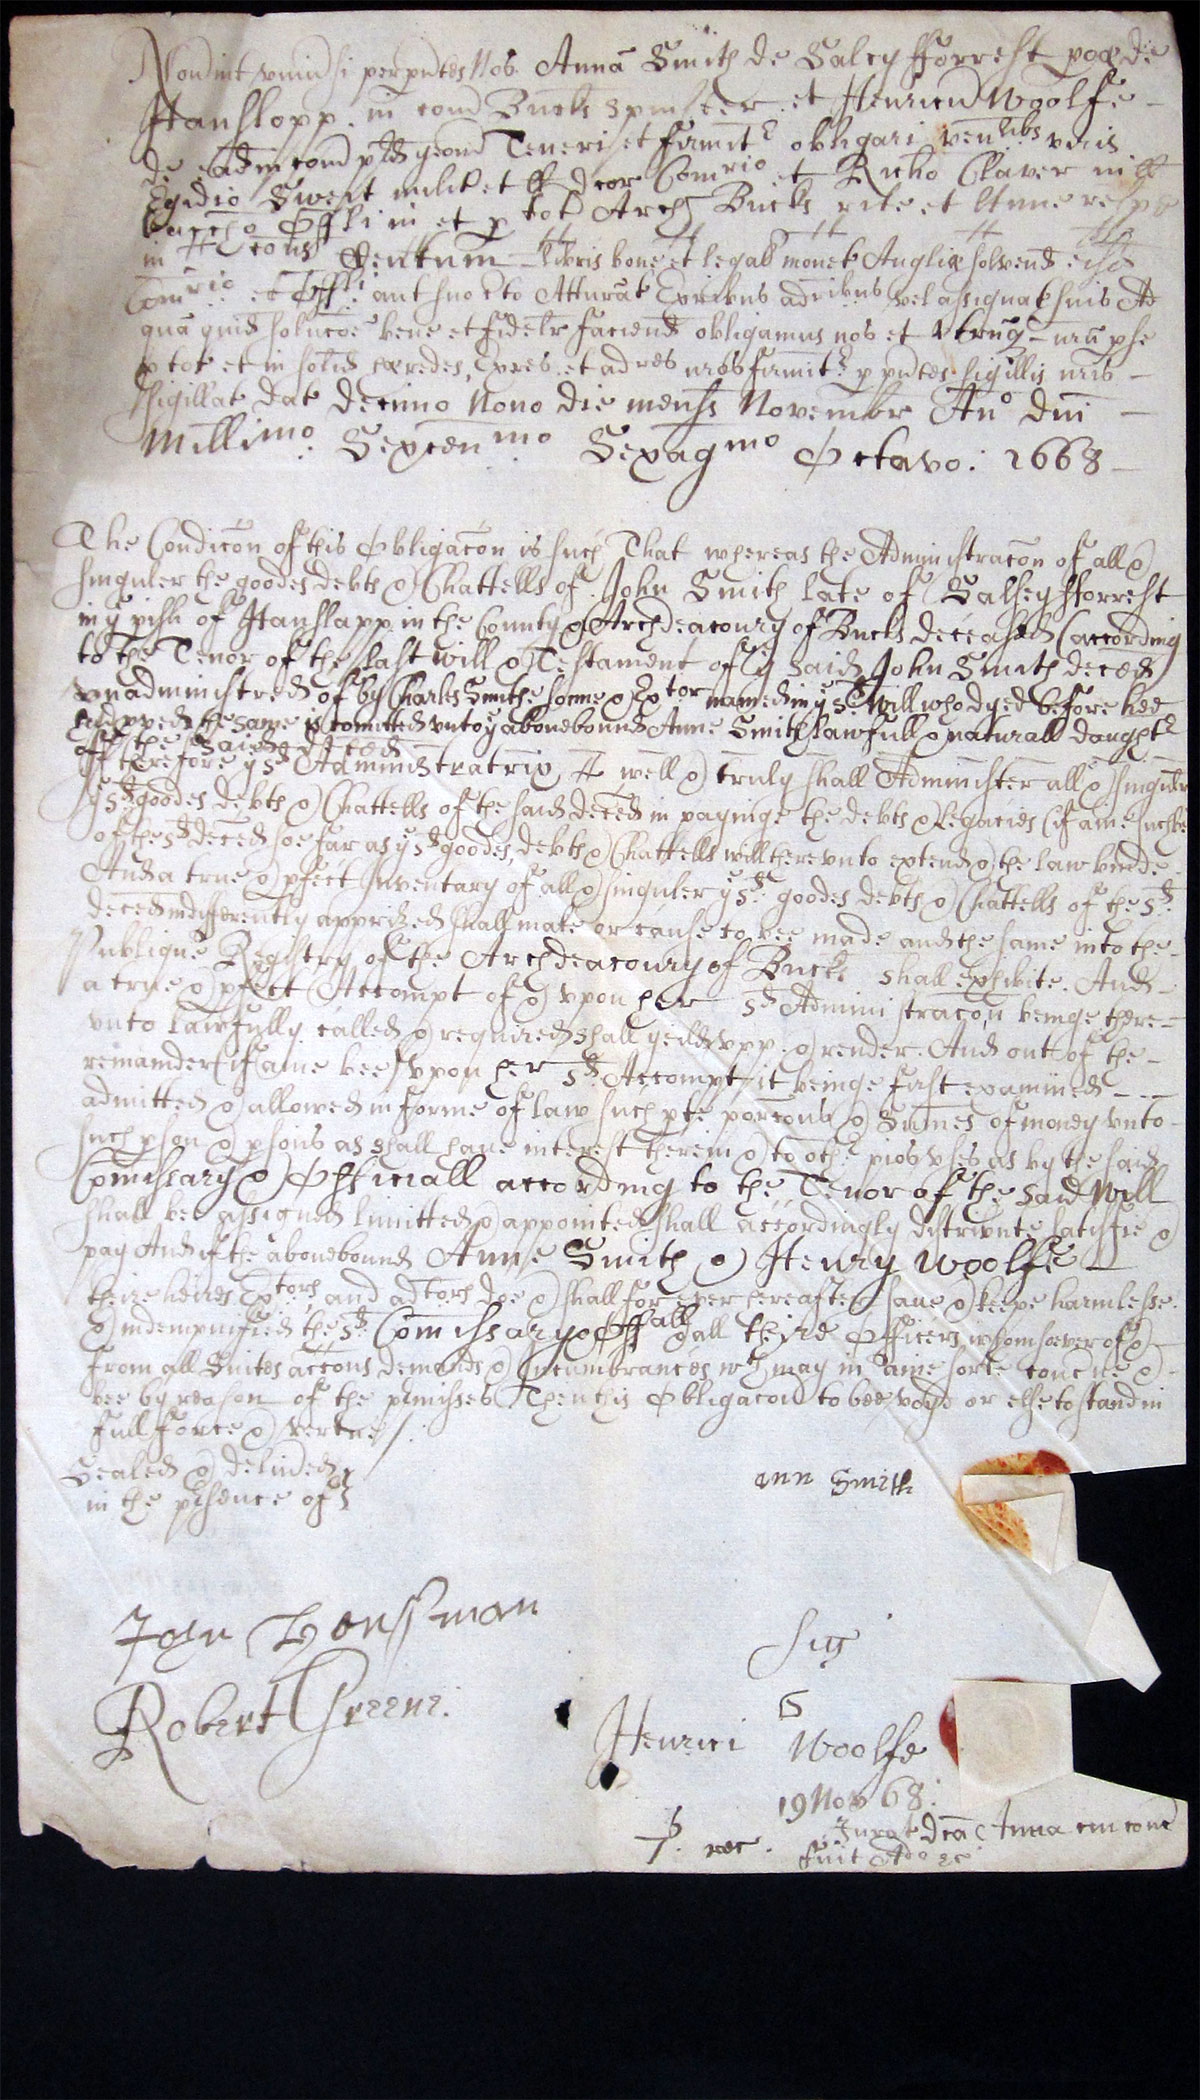 Noverint univsi per pntes Nos Annā Smith de Salcy fforrest poæ de
Hanslopp in com Bucks spinster et Henricū Woolfe –
de eadm in com pd geond Teneri et firmit obligari ven libs viris
Egidio Swest milit et Dcor Comrio et Richo Claver in
Offli in et p tot Arch Bucks rite et ltime
in Centum libris bone et legal monet Angliæ solvend eisd
Comrio et Offli aut suo cto Atturnat Exribus adribus vel assignat suis Ad
quā quid solucōe bene et fidelr faciend obligamus nos et utrūq nrū p se
p tot et in solid hæredes, Exres et adres nros firmit p pntes sigillis nris –
sigillat dat decimo Nono die mensis Novembr Ano dni –
Millimo Sexcenmo Sexagmo Octavo: 1668 –
The Condicōn of this Obligacōn is such That whereas the Administracōn of all &
singuler the goodes debts & Chattells of John Smith late of Salsey fforrest
in ye pish of Hanslapp in the County & Archdeaconry of Bucks deceased (according
to the Tenor of the last will & Testament of ye said John Smith deced
unadministred of by Charles Smith sonne & Extor named in ye sd Will who dyed before hee
had pved the same is comitted unto ye abovebound Anne Smith lawfull & naturall daught
off the said deced
If therefore ye sd Administratrix well & truly shall Administer all & singuler
ye sd goodes debts & Chattells of the said deced in payinge the debts & Legacies (if anie such be
of the sd deced soe far as ye sd goodes, debts & Chattells will thereunto extend & the law binde
And a true & pfect Inventary of all & singuler ye sd goodes debts & Chattells of the sd
deced indifferently apprized shall make or cause to bee made and the same into the –
Publique Registry of the Archdeaconry of Bucks shall exhibite. And –
a true & pfect Accompt of & upon her sd Administracōn beinge there –
unto lawfully called & required shall yeild upp & render. And out of the –
remainder (if anie bee) upon her sd Accompt it beinge first examined –
admitted & allowed in forme of law such pte porcons & summes of money unto –
such pson & psons as shall have interest therein & to oth pios uses as by the said
Comissary & Officiall according to the Tenor of the said Will
shall bee assigned limitted & appointed shall accordingly distribute satisfie &
pay And if the abovebound Anne Smith & Henry Woolfe –
theire heires Extors and adtors doe & shall for ever hereafter save & keepe harmlesse
& indempnified the sd Comissary & Offall & all theire Officers whomsoever of & –
from all Suites accons demands & Incumbrances wch may in anie sorte concne & –
bee by reason of the pmisses Then this Obligacōn to bee voyd or else to stand in
full force & vertue /.
Sealed & delivded
in the psence of
ann Smith
Robert Greene.
Sig
Henrici Woolfe
19 Nov 68:
Jurat dca Anna
fuit